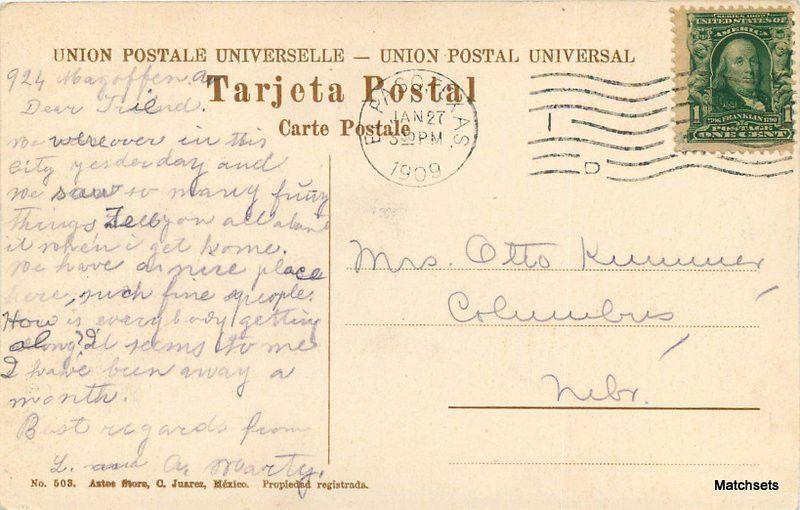 UNION POSTALE UNIVERSELLE — UNION POSTAL UNIVERSAL
Tarjeta Postal
Carte Postale
EL PASO, TEXAS
JAN 27
3 30 PM
1909
D
SERIES 1902
UNITED STATES OF
AMERICA
1 1
1706 FRANKLIN 1790
POSTAGE
ONE CENT
924 Magoffen Av
Dear Friend.
we were over in this
city yesterday and
we saw so many funny
things Tell you all about
it when i get home.
We have a nice place
here, such fine people.
How is everybody getting
along? It seems to me
I have been away a
month.
Best regards from
L. and A. Marty.
Mrs. Otto Kummer
Columbus,
Nebr.
No. 503. Aztec Store, C. Juarez, México. Propiedad registrada.
Matchsets